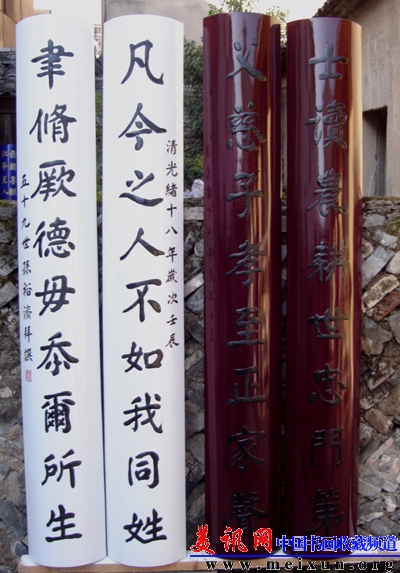 士讀農耕世忠門第
父慈子孝至正家聲
清光緒十八年歲次壬辰
凡今之人不如我同姓
聿脩厥德毋忝爾所生
五十九世孫裕濟拜撰
美讯网 中国书画收藏频道
www.meixun.org